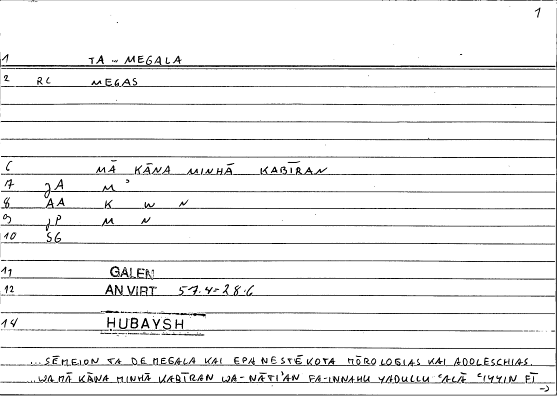 1
1 TA - MEGALA
2 RC MEGAS
6 MĀ KĀNA MINHĀ KABĪRAN
7 JA M ʾ
8 AA K W N
9 JP M N
10 SG
11 GALEN
12 AN VIRT 57.4-28.6
14 HUBAYSH
...SĒMEION TA DE MEGALA KAI EPANESTĒKOTA MŌROLOGIAS KAI ADOLESCHIAS.
...WA-MĀ KĀNA MINHĀ KABĪRAN WA-NĀTIʾAN FA-INNAHU YADULLU ʿALĀ ʿIYYIN FĪ
→